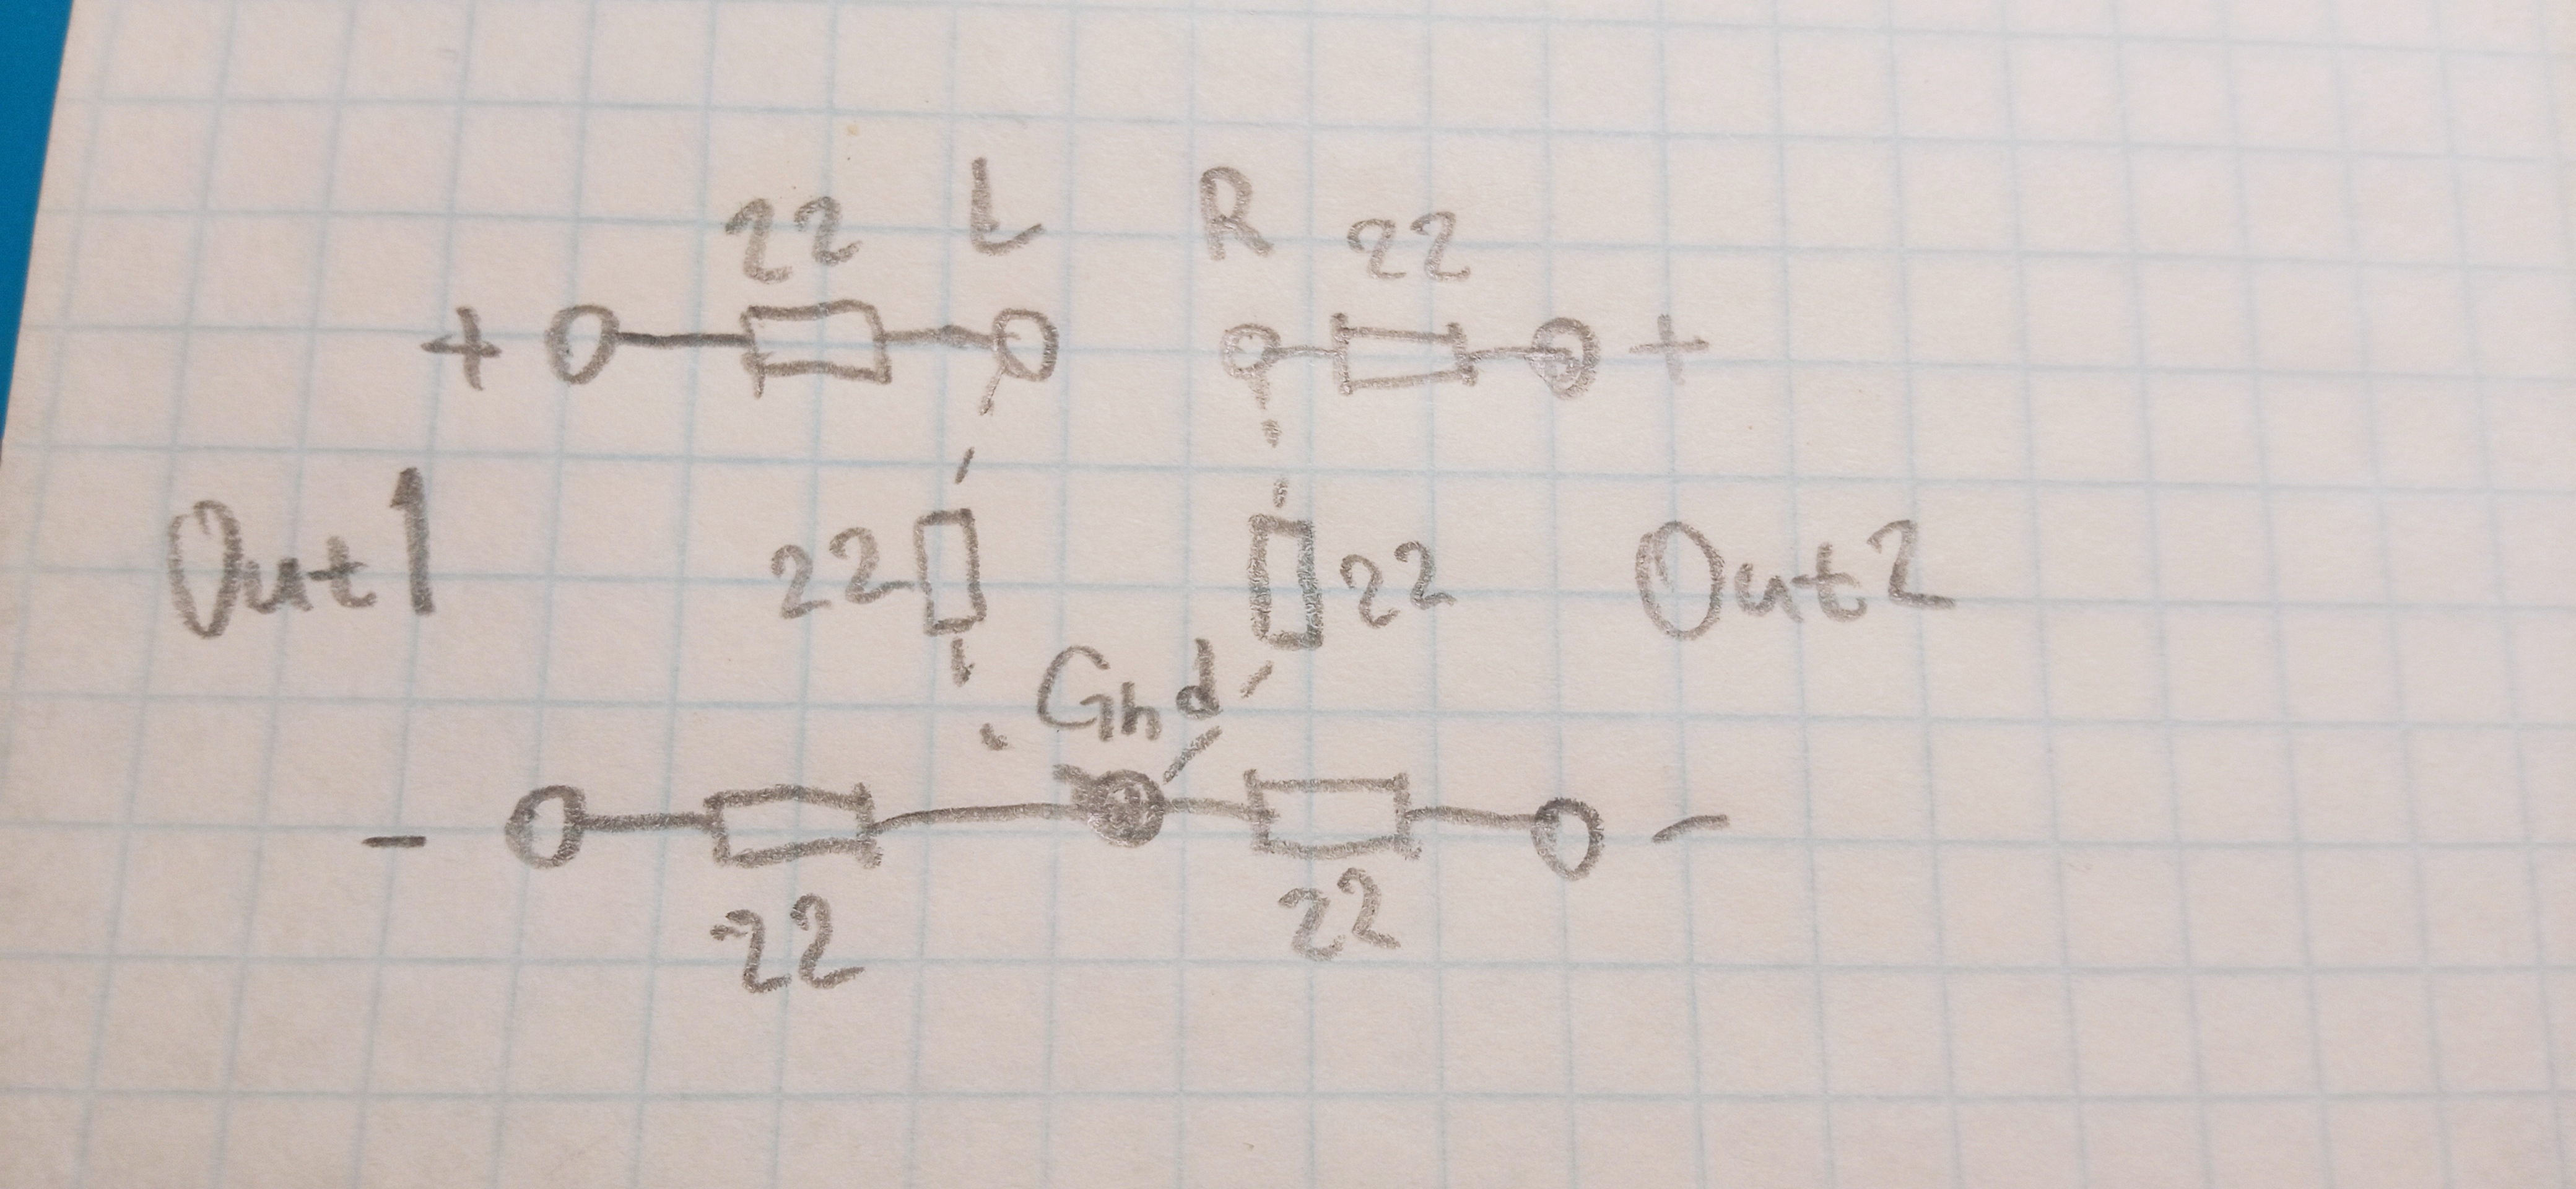 22 L R 22
+ +
Out1 22 22 Out2
Gnd
- -
22 22